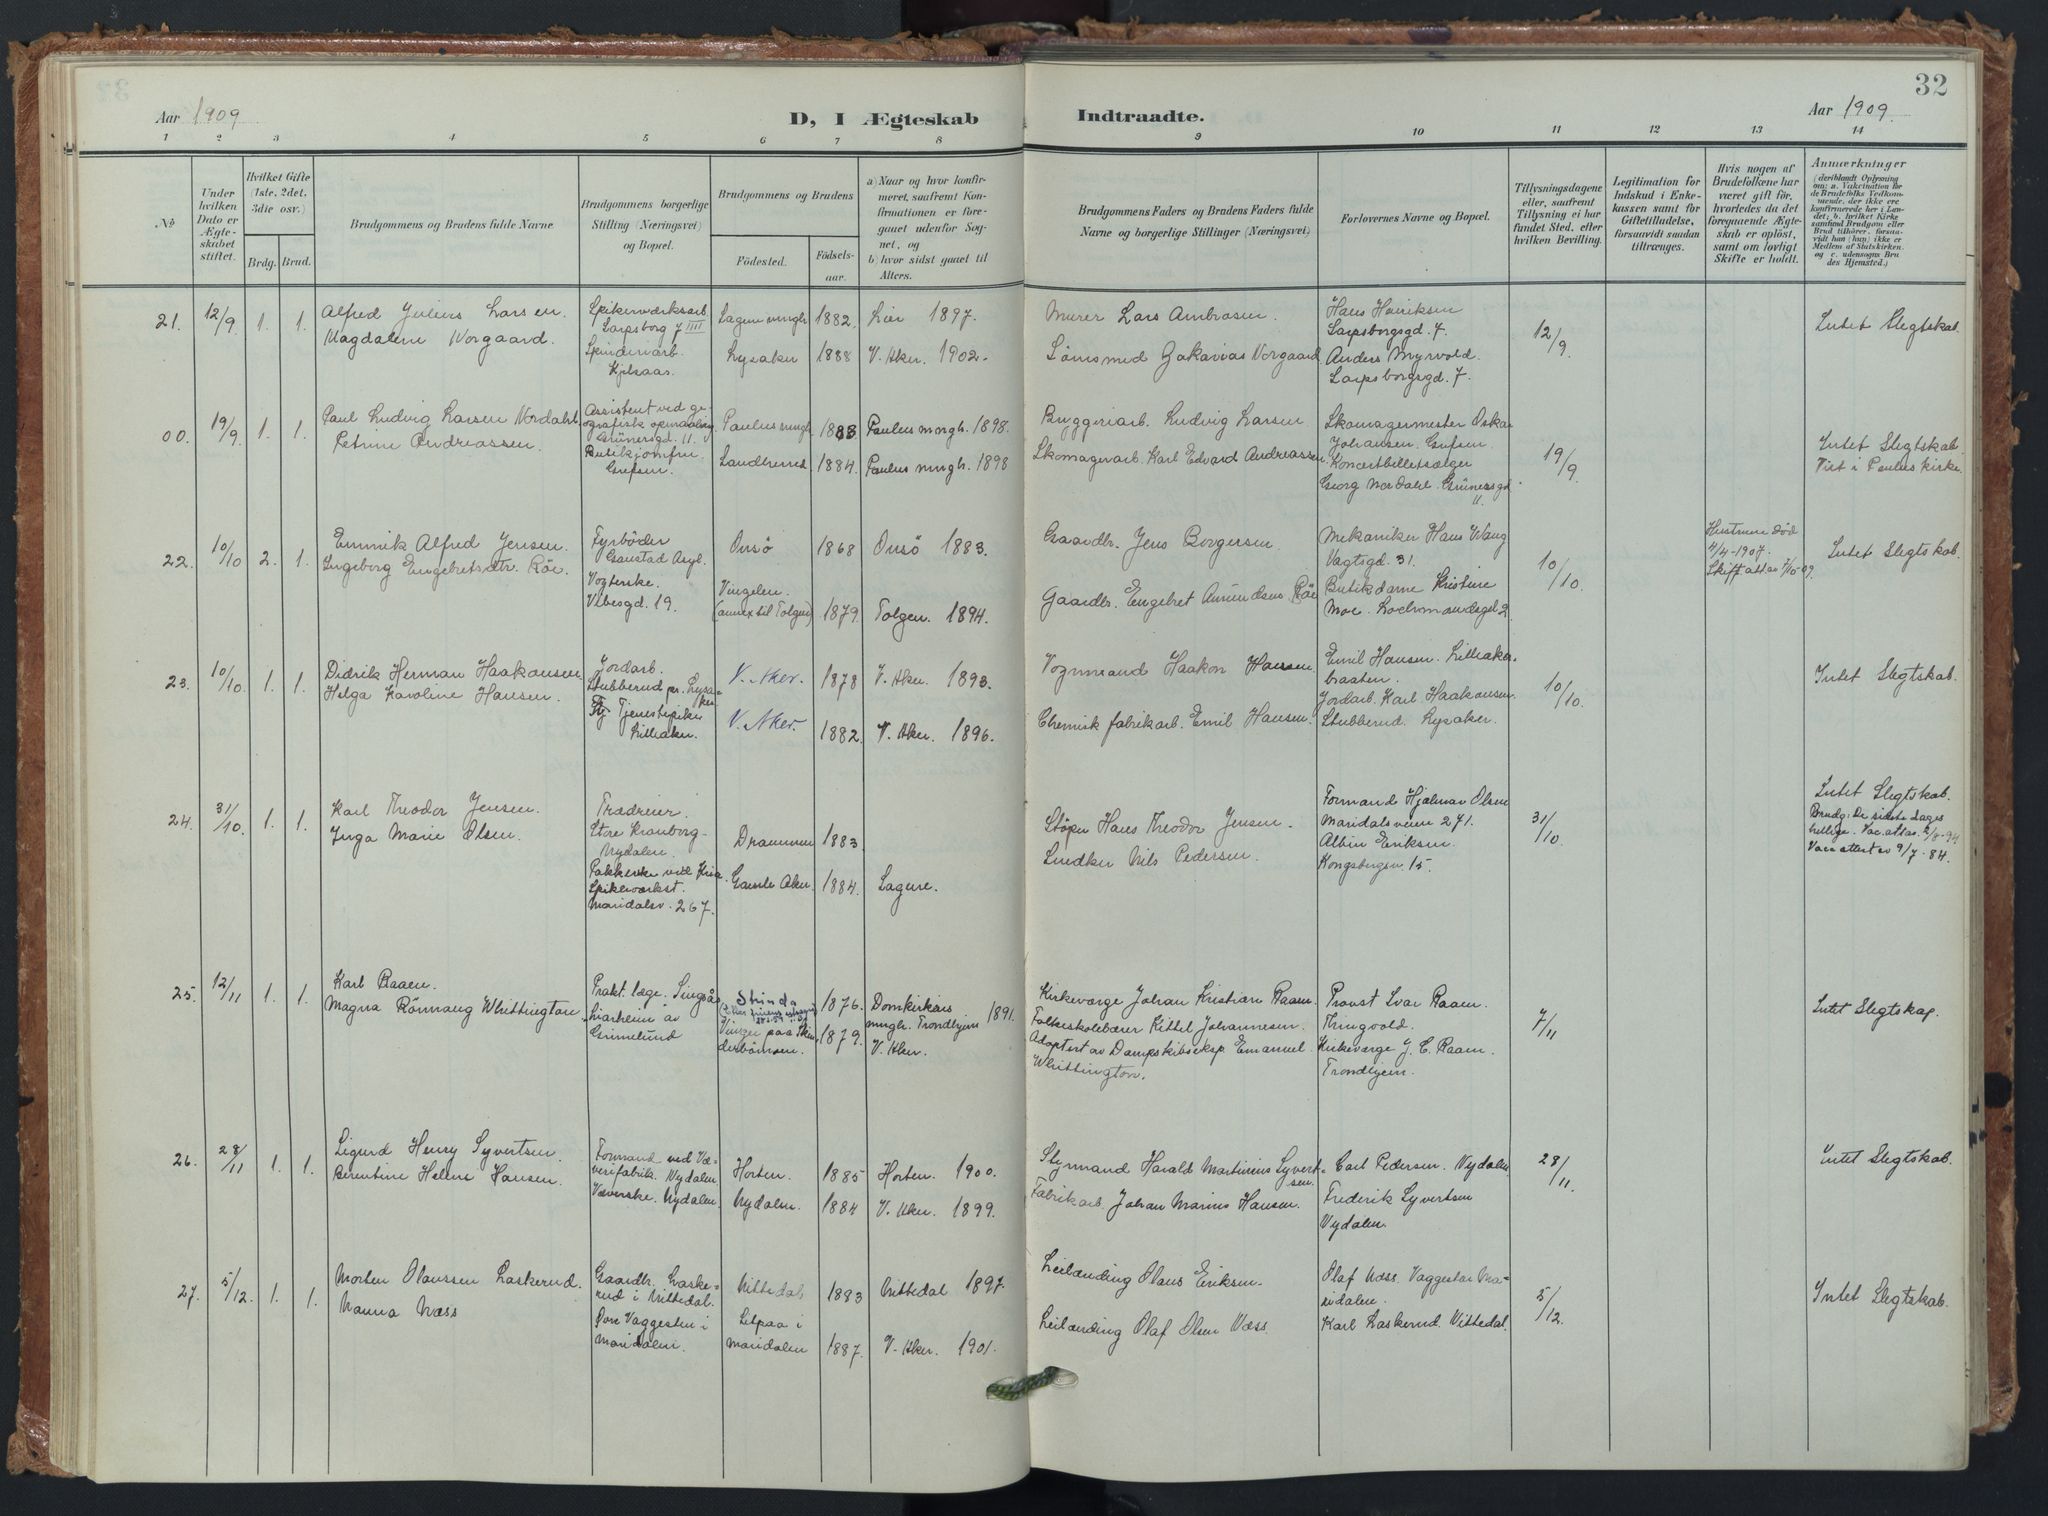 32
Aar 1909.
D, I Ægteskab
Indtraadte.
Aar 1909.
1 2 3 4 5 6 7 8 9 10 11 12 13 14
№
Under
hvilken
Dato er
Ægte-
skabet
stiftet.
Hvilket Gifte
(1ste. 2det.
3die osv.)
Brdg. Brud.
Brudgommens og Brudens fulde Navne.
Brudgommens borgerlige
Stilling (Næringsvei)
og Bopæl.
Brudgommens og Brudens
Födested.
Födsels-
aar.
a) Naar og hvor konfir-
meret, saafremt Kon-
firmationen er fore-
gaaet udenfor Sog-
net, og
b) hvor sidst gaaet til
Alters.
Brudgommens Faders og Brudens Faders fulde
Navne og borgerlige Stillinger (Næringsvei)
Forlovernes Navne og Bopæl.
Tillysningsdagene
eller, saafremt
Tillysning ei har
fundet Sted, efter
hvilken Bevilling.
Legitimation for
Indskud i Enke-
kassen samt for
Giftetilladelse,
forsaavidt saadan
tiltrænges.
Hvis nogen af
Brudefolkene har
været gift før,
hvorledes da det
foregaaende Ægte-
skab er oplöst,
samt om lovligt
Skifte er holdt.
Anmærkninger
(deriblandt Oplysning
om: a. Vakcination for
de Brudefolks Vedkom-
mende, der ikke ere
konfirmerede her i Lan-
det; b. hvilket Kirke
samfund Brudgom eller
Brud tilhörer, forsaa-
vidt han (hun) ikke er
Medlem af Statskirken.
og c. udensogns Bru-
des Hjemsted.)
21. 12/9 1. 1. Alfred Julius Larsen.
Magdalene Norgaard.
Spikerværksarb.
Sarpsborg 7 IIII
Spinderiarb.
Kjelsaas.
Sagene mngh. 1882. Lier 1897.
Lysaker 1888 V. Aker. 1902.
Murer Lars Ambrosen.
Lömsmed Zakarias Norgaard
Hans Henriksen
Sarpsborgsgd. 7.
Anders Myrvold.
Sarpsborgsgd. 7.
12/9.
Intet Slegtskab.
00. 19/9. 1. 1. Paul Ludvig Larsen Nordahl.
Petrine Andreassen.
Assistent ved ge-
ografisk opmaaling
Grünersgd. 11.
Butikjomfru.
Grefsen.
Paulus mngh. 1883. Paulus mengh. 1898.
Sandherred 1884. Paulus mngh. 1898
Bryggeriarb. Ludvig Larsen
Skomagerarb. Karl Edvard Andreassen.
Skomagermester Oskar
Johansen. Grefsen.
Koncertbilletsælger
Georg Nordahl. Grünersgd.
11.
19/9.
Intet Slegtskab.
Viet i Paulus kirke.
22. 10/10 2. 1. Emmik Alfred Jensen.
Ingeborg Engebretsdtr. Röe.
Fyrböder
Gaustad Asyl.
Vogterske.
Vibesgd. 19.
Onsö 1868 Onsö 1883.
Vingelen.
(annex til Tolgen) 1879. Tolgen. 1894.
Gaardbr. Jens Borgersen
Gaardbr. Engebret Amundsen Röe
Mekaniker Hans Wang
Vagtsgd. 31.
Butikdame Kristine
Moe.
10/10.
Hustruen död
4/4-1907.
Skift. att. av 7/10-09.
Intet Slegtskab.
23. 10/10. 1. 1. Didrik Herman Haakonsen.
Helga Karoline Hansen.
Jordarb.
Stubberud pr. Lysa-
ker
Tjenestepike
Lilleaker.
V. Aker. 1878 V. Aker. 1893.
V. Aker. 1882. V. Aker. 1896.
Vognmand Haakon Hansen.
Chemisk fabrikarb. Emil Hansen.
Emil Hansen. Lilleaker-
braaten.
Jordarb. Karl Haakonsen.
Stubberud. Lysaker.
10/10.
Intet Slegtskab.
24. 31/10. 1. 1. Karl Theodor Jensen.
Inga Marie Olsen.
Trædreier.
Store Kranborg-
Nydalen.
Pakkerske ved Kria.
Spikerværkst.
Maridalsv. 267.
Drammen 1883.
Gamle Aker. 1884. Sagene.
Stöper Hans Theodor Jensen.
Snedker Nils Pedersen.
Formand Hjalmar Olsen
Maridalsveien 271.
Albin Eriksen.
Kongsbergsv. 15.
31/10.
Intet Slegtskab.
Brudg: De sidste dages
hellige. Vac. attes. 2/8-94
Vacc attest av 9/7-84.
25. 12/11 1. 1. Karl Raaen.
Magna Rönnaug Whittington.
Prakt. læge. Singsås
Liarheim av
Grimelund
Strinda
Vinger paa Skin-
derbömoen.
1876.
1879.
Domkirkens
mngh. Trondhjem 1891.
V. Aker.
Kirkeværge Johan Kristian Raaen.
Folkeskolelærer Kittel Johannesen.
Adoptert av Dampskibseksp. Emanuel
Whittington.
Provst Ivar Raaen.
Tingvold.
Kirkeværge J. C. Raaen.
Trondhjem.
7/11
Intet Slegtskap.
26. 28/11 1. 1. Sigurd Henry Syvertsen.
Berentine Helene Hansen.
Formand ved Væ-
verifabrik. Nydalen.
Væverske. Nydalen.
Horten. 1885 Horten. 1900.
Nydalen. 1884 V. Aker. 1899.
Styrmand Harald Martinius Syvert-
sen.
Fabrikarb. Johan Marius Hansen.
Carl Pedersen. Nydalen.
Frederik Syvertsen
Nydalen.
28/11.
Intet Slegtskab.
27. 5/12. 1. 1. Morten Olaussen Laskerud.
Nanna Næss
Gaardbr. Laske-
rud i Nittedal.
Övre Vaggesten i
Maridalen.
Nittedal 1883 Nittedal 1897.
Setpaa i
Maridalen 1887. V. Aker. 1901.
Leilænding Olaus Eriksen.
Leilænding Olaf Olsen Næss.
Olaf Næss. Vaggesten Ma-
ridalen.
Karl Laskerud. Nittedal.
5/12.
Intet Slegtskab.